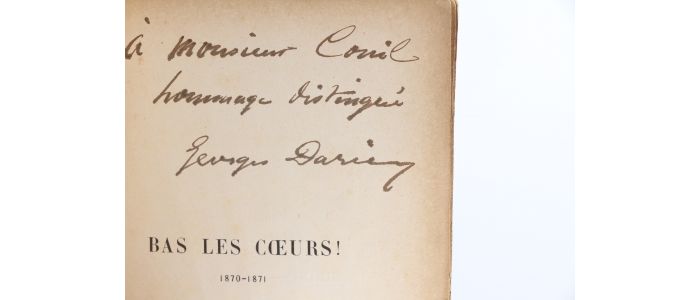 à monsieur Conil
hommage distingué
Georges Darien
BAS LES CŒURS!
1870-1871